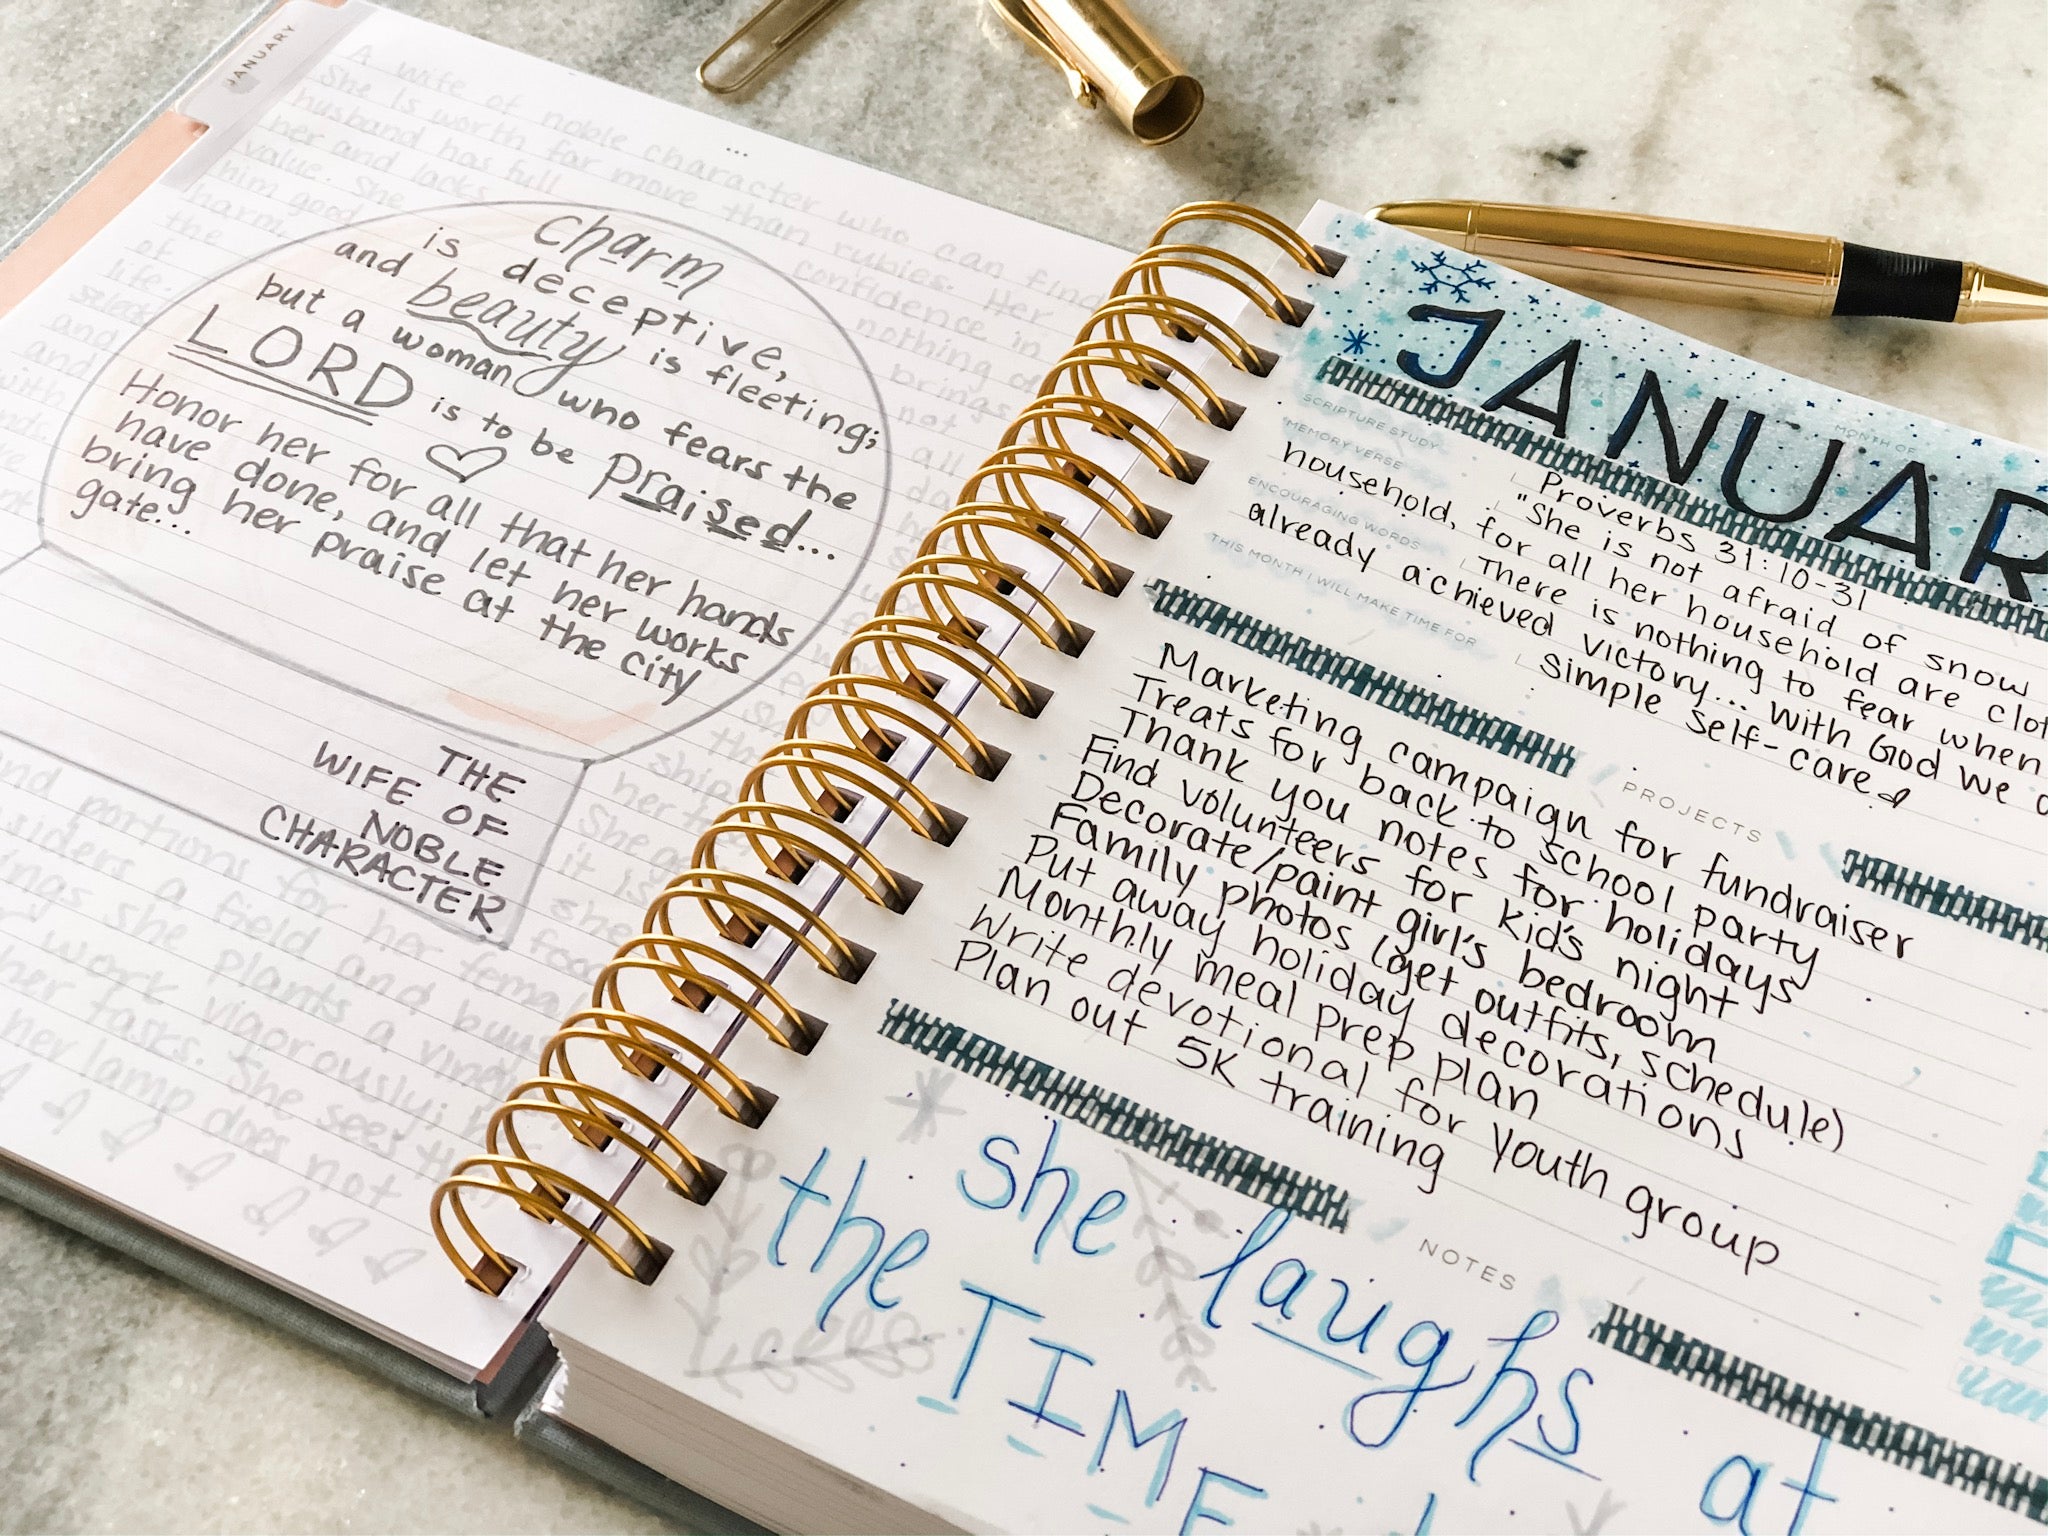 JANUARY
A wife of noble character who can find
She is worth far more than rubies. Her
husband has full confidence in
her and lacks nothing of
value. She brings
him good not
harm, all
the
of
life.
select
and
and
charm
is deceptive,
and beauty is fleeting;
but a woman who fears the
LORD is to be praised...
Honor her for all that her hands
have done, and let her works
bring her praise at the city
gate...
THE
WIFE OF
NOBLE
CHARACTER
and portions for her female
a field and buys
she plants a
work vigorously;
her tasks. She sees
her lamp does not
JANUAR
MONTH OF
SCRIPTURE STUDY
Proverbs 31:10-31
MEMORY VERSE
"She is not afraid of snow
household, for all her household are
ENCOURAGING WORDS
There is nothing to fear when
already achieved victory... With God we
THIS MONTH I WILL MAKE TIME FOR
Simple self-care
PROJECTS
Marketing campaign for fundraiser
Treats for back to school party
Thank you notes for holidays
Find volunteers for kid's night
Decorate/paint girl's bedroom
Family photos (get outfits, schedule)
Put away holiday decorations
Monthly meal prep plan
Write devotional for youth group
Plan out 5K training
NOTES
she laughs at
the TIME